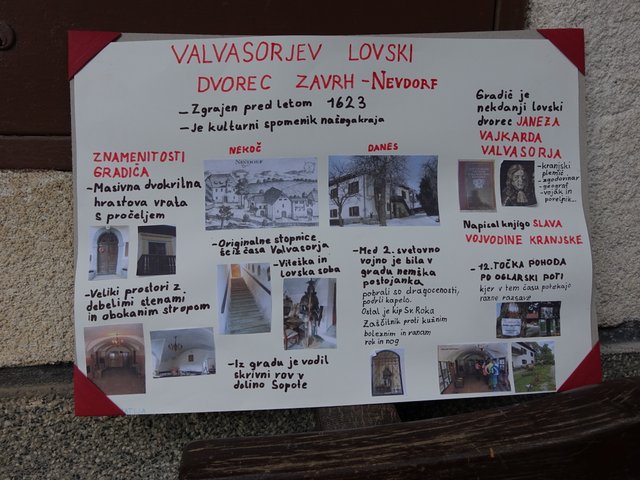 VALVASORJEV LOVSKI
DVOREC ZAVRH - NEVDORF
- Zgrajen pred letom 1623
- Je kulturni spomenik našega kraja
Gradič je
nekdanji lovski
dvorec JANEZA
VAJKARDA
VALVASORJA
- kranjski
plemič
- zgodovinar
- geograf
- vojak in
poreljnik...
Napisal knjigo SLAVA
VOJVODINE KRANJSKE
ZNAMENITOSTI
GRADIČA
- Masivna dvokrilna
hrastova vrata
s pročeljem
- Veliki prostori z
debelimi stenami
in obokanim stropom
NEKOČ
NEVDORF
DANES
- Originalne stopnice
še iz časa Valvasorja
- Viteška in
lovska soba
- Iz gradu je vodil
skrivni rov v
dolino Sopote
- Med 2. svetovno
vojno je bila v
gradu nemška
postojanka
pobrali so dragocenosti,
podrli kapelo.
Ostal je kip Sv. Roka
Zaščitnik proti kužnim
boleznim in ranam
rok in nog
- 12. TOČKA POHODA
PO OGLARSKI POTI
kjer v tem času potekajo
razne razstave